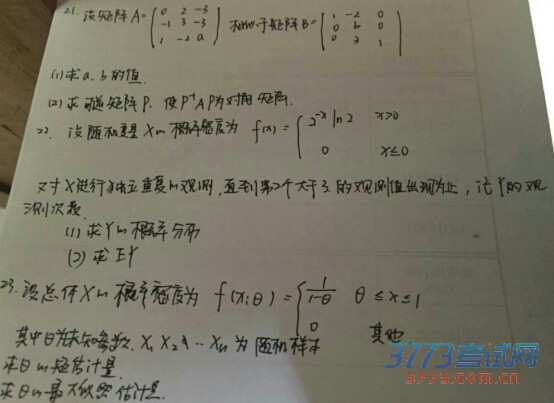 21. 设矩阵A=(0 2 -3
-1 3 -3
1 -2 a) 相似于矩阵B=(1 -2 0
0 b 0
0 3 1)
(1)求a.b的值.
(2)求可逆矩阵P. 使P⁻¹AP为对角矩阵.
22. 设随机变量X的概率密度为 f(x)={2^-x ln2 x>0
0 x≤0
对X进行独立重复的观测,直到第2个大于3的观测值出现为止,记Y的观
测次数.
(1)求Y的概率分布
(2)求EY
23.设总体X的概率密度为 f(x;θ)={1/(1-θ) θ≤x≤1
0 其他
其中θ为未知参数. X₁ X₂ … Xn 为随机样本
求θ的矩估计量.
求θ的最大似然估计量.
3773考试网
srra.com.cn